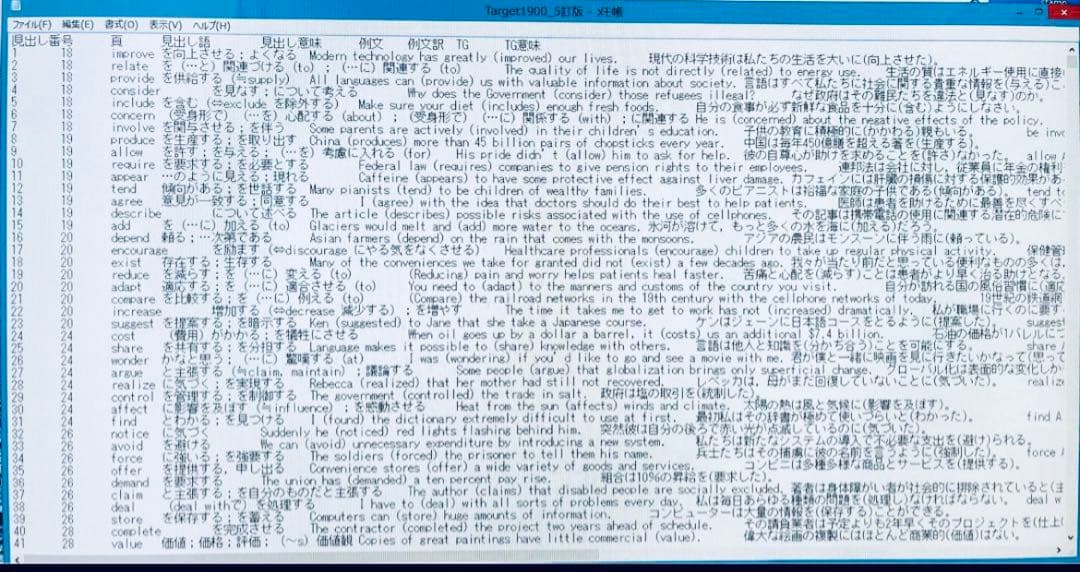 Target1900_5訂版 - メモ帳
ファイル(F) 編集(E) 書式(O) 表示(V) ヘルプ(H)
見出し番号 頁 見出し語 見出し意味 例文 例文訳 TG TG意味
1 18 improve を向上させる；よくなる Modern technology has greatly (improved) our lives. 現代の科学技術は私たちの生活を大いに(向上させた)。
2 18 relate を(…と)関連づける (to)；(…に)関連する (to) The quality of life is not directly (related) to energy use. 生活の質はエネルギー使用に直接
3 18 provide を供給する (≒supply) All languages can (provide) us with valuable information about society. 言語はすべて私たちに社会に関する貴重な情報を(与える)こ
4 18 consider を見なす；について考える Why does the Government (consider) those refugees illegal? なぜ政府はその難民たちを違法と(見なす)のか。
5 18 include を含む (⇔exclude を除外する) Make sure your diet (includes) enough fresh foods. 自分の食事が必ず新鮮な食品を十分に(含む)ようにしなさい。
6 18 concern (受身形で) (…を) 心配する (about)；(受身形で) (…に) 関係する (with)；に関連する He is (concerned) about the negative effects of the policy.
7 18 involve を関与させる；を伴う Some parents are actively (involved) in their children's education. 子供の教育に積極的に(かかわる)親もいる。 be inv
8 18 produce を生産する；を取り出す China (produces) more than 45 billion pairs of chopsticks every year. 中国は毎年450億膳を超える箸を(生産する)。
9 19 allow を許す；を与える；(…を) 考慮に入れる (for) His pride didn't (allow) him to ask for help. 彼の自尊心が助けを求めることを(許さ)なかった。 allow A
10 19 require を要求する；を必要とする Federal law (requires) companies to give pension rights to their employees. 連邦法は会社に対し、従業員に年金の権利
11 19 appear …のように見える；現れる Caffeine (appears) to have some protective effect against liver damage. カフェインは肝臓の損傷に対する保護的効果があ
12 19 tend 傾向がある；を世話する Many pianists (tend) to be children of wealthy families. 多くのピアニストは裕福な家庭の子供である(傾向がある)。 tend to
13 19 agree 意見が一致する；同意する I (agree) with the idea that doctors should do their best to help patients. 医師は患者を助けるために最善を尽くすべ
14 19 describe について述べる The article (describes) possible risks associated with the use of cellphones. その記事は携帯電話の使用に関連する潜在的危険に
15 19 add を (…に) 加える (to) Glaciers would melt and (add) more water to the oceans. 氷河が溶けて、もっと多くの水を海に(加える)だろう。
16 20 depend 頼る；…次第である Asian farmers (depend) on the rain that comes with the monsoons. アジアの農民はモンスーンに伴う雨に(頼っている)。
17 20 encourage を励ます (⇔discourage にやる気をなくさせる) Healthcare professionals (encourage) children to take up regular physical activity. 保健管
18 20 exist 存在する；生存する Many of the conveniences we take for granted did not (exist) a few decades ago. 我々が当たり前だと思っている便利なものの多くは、
19 20 reduce を減らす；を (…に) 変える (to) (Reducing) pain and worry helps patients heal faster. 苦痛と心配を(減らす)ことは患者がより早く治る助けとなる。
20 20 adapt 適応する；を (…に) 適合させる (to) You need to (adapt) to the manners and customs of the country you visit. 自分が訪れる国の風俗習慣に(適応
21 20 compare を比較する；を (…に) 例える (to) (Compare) the railroad networks in the 19th century with the cellphone networks of today. 19世紀の鉄道網
22 20 increase 増加する (⇔decrease 減少する)；を増やす The time it takes me to get to work has not (increased) dramatically. 私が職場に行くのに要す
23 20 suggest を提案する；を暗示する Ken (suggested) to Jane that she take a Japanese course. ケンはジェーンに日本語コースをとるように(提案した)。 sugges
24 24 cost （費用）がかかる；を犠牲にさせる When oil goes up by a dollar a barrel, it (costs) us an additional $7.4 billion. 石油の価格が1バレルに
25 24 share を共有する；を分担する Language makes it possible to (share) knowledge with others. 言語は他人と知識を(分かち合う)ことを可能にする。 share A
26 24 wonder かなと思う；(…に) 驚嘆する (at) I was (wondering) if you'd like to go and see a movie with me. 君が僕と一緒に映画を見に行きたいかなって(思って
27 24 argue と主張する (≒claim, maintain)；議論する Some people (argue) that globalization brings only superficial change. グローバル化は表面的な変化しか
28 24 realize に気づく；を実現する Rebecca (realized) that her mother had still not recovered. レベッカは、母がまだ回復していないことに(気づいた)。 realiz
29 24 control を管理する；を制御する The government (controlled) the trade in salt. 政府は塩の取引を(統制した)。
30 24 affect に影響を及ぼす (≒influence)；を感動させる Heat from the sun (affects) winds and climate. 太陽の熱は風と気候に(影響を及ぼす)。
31 24 find とわかる；を見つける I (found) the dictionary extremely difficult to use at first. 最初私はその辞書が極めて使いづらいと(わかった)。 find A
32 26 notice に気づく Suddenly he (noticed) red lights flashing behind him. 突然彼は自分の後ろで赤い光が点滅しているのに(気づいた)。
33 26 avoid を避ける We can (avoid) unnecessary expenditure by introducing a new system. 私たちは新たなシステムの導入で不必要な支出を(避け)られる。
34 26 force に強いる；を強要する The soldiers (forced) the prisoner to tell them his name. 兵士たちはその捕虜に彼の名前を言うように(強制した)。 force A
35 26 offer を提供する，申し出る Convenience stores (offer) a wide variety of goods and services. コンビニは多種多様な商品とサービスを(提供する)。
36 26 demand を要求する The union has (demanded) a ten percent pay rise. 組合は10%の昇給を(要求した)。
37 26 claim と主張する；を自分のものだと主張する The author (claims) that disabled people are socially excluded. 著者は身体障がい者が社会的に排除されていると(主
38 26 deal (deal withで) を処理する I have to (deal) with all sorts of problems every day. 私は毎日あらゆる種類の問題を(処理し)なければならない。 deal w
39 26 store を保存する；を蓄える Computers can (store) huge amounts of information. コンピューターは大量の情報を(保存する)ことができる。
40 28 complete を完成させる The contractor (completed) the project two years ahead of schedule. その請負業者は予定よりも2年早くそのプロジェクトを(仕上
41 28 value 価値；価格；評価；(～s) 価値観 Copies of great paintings have little commercial (value). 偉大な絵画の複製にはほとんど商業的(価値)はない。